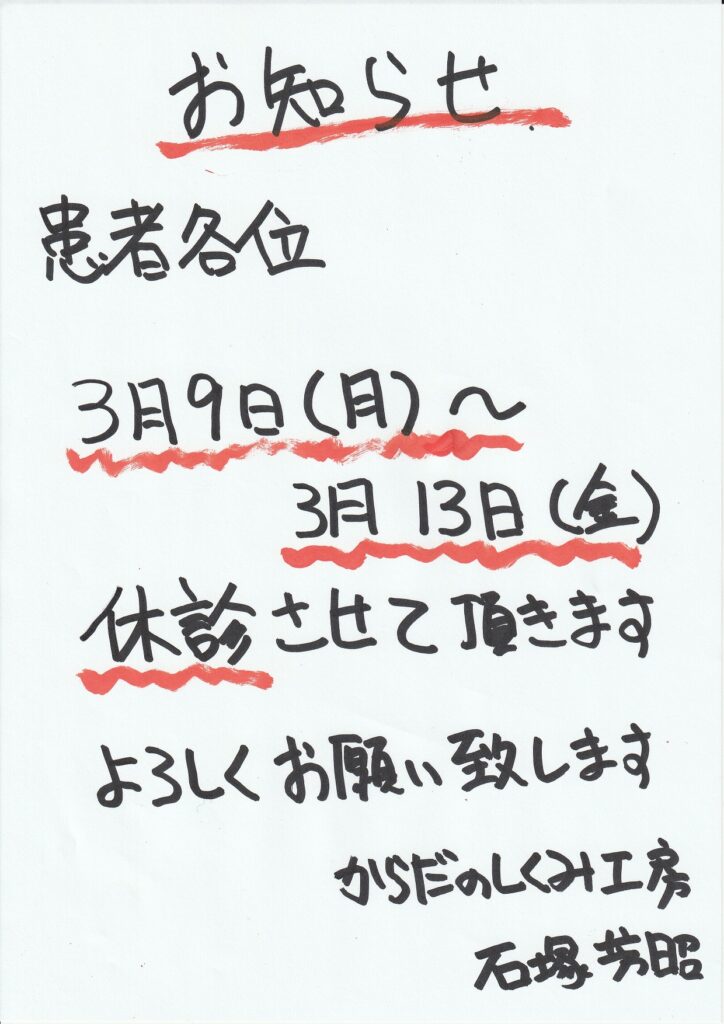 お知らせ
患者各位
3月9日(月)～
3月13日(金)
休診させて頂きます
よろしくお願い致します
からだのしくみ工房
石塚芳昭